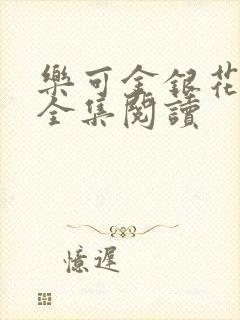 樂可金銀花
全集閱讀
憶遲